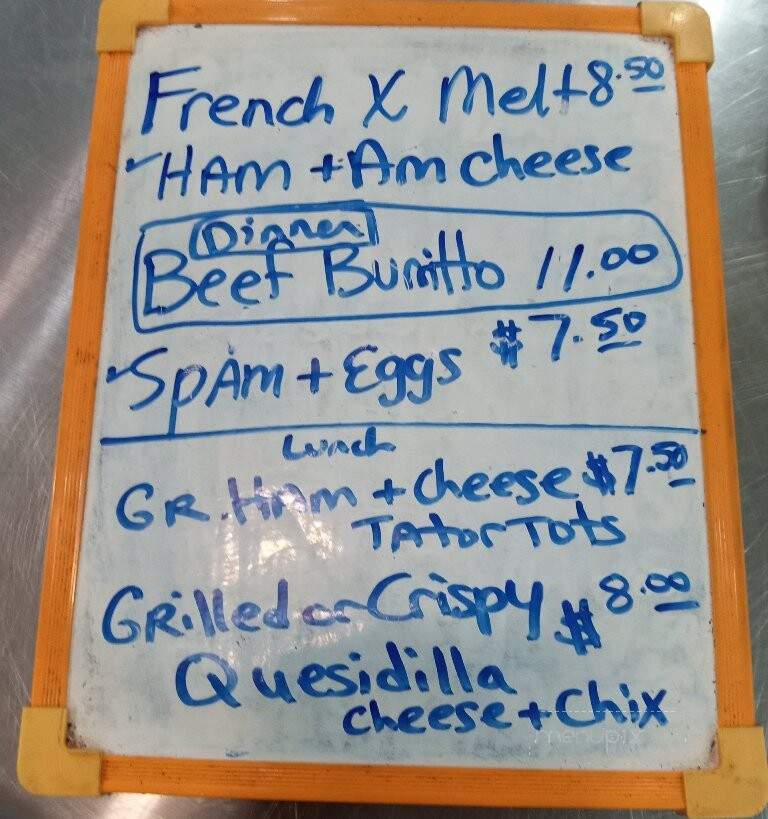 French X Melt 8.50
✓HAm + Am cheese
Dinner
Beef Burritto 11.00
✓SpAm + Eggs $7.50
Lunch
GR. HAm + cheese $7.50
TAtor Tots
GRilled or Crispy $8.00
Quesidilla
cheese + Chix
menupix